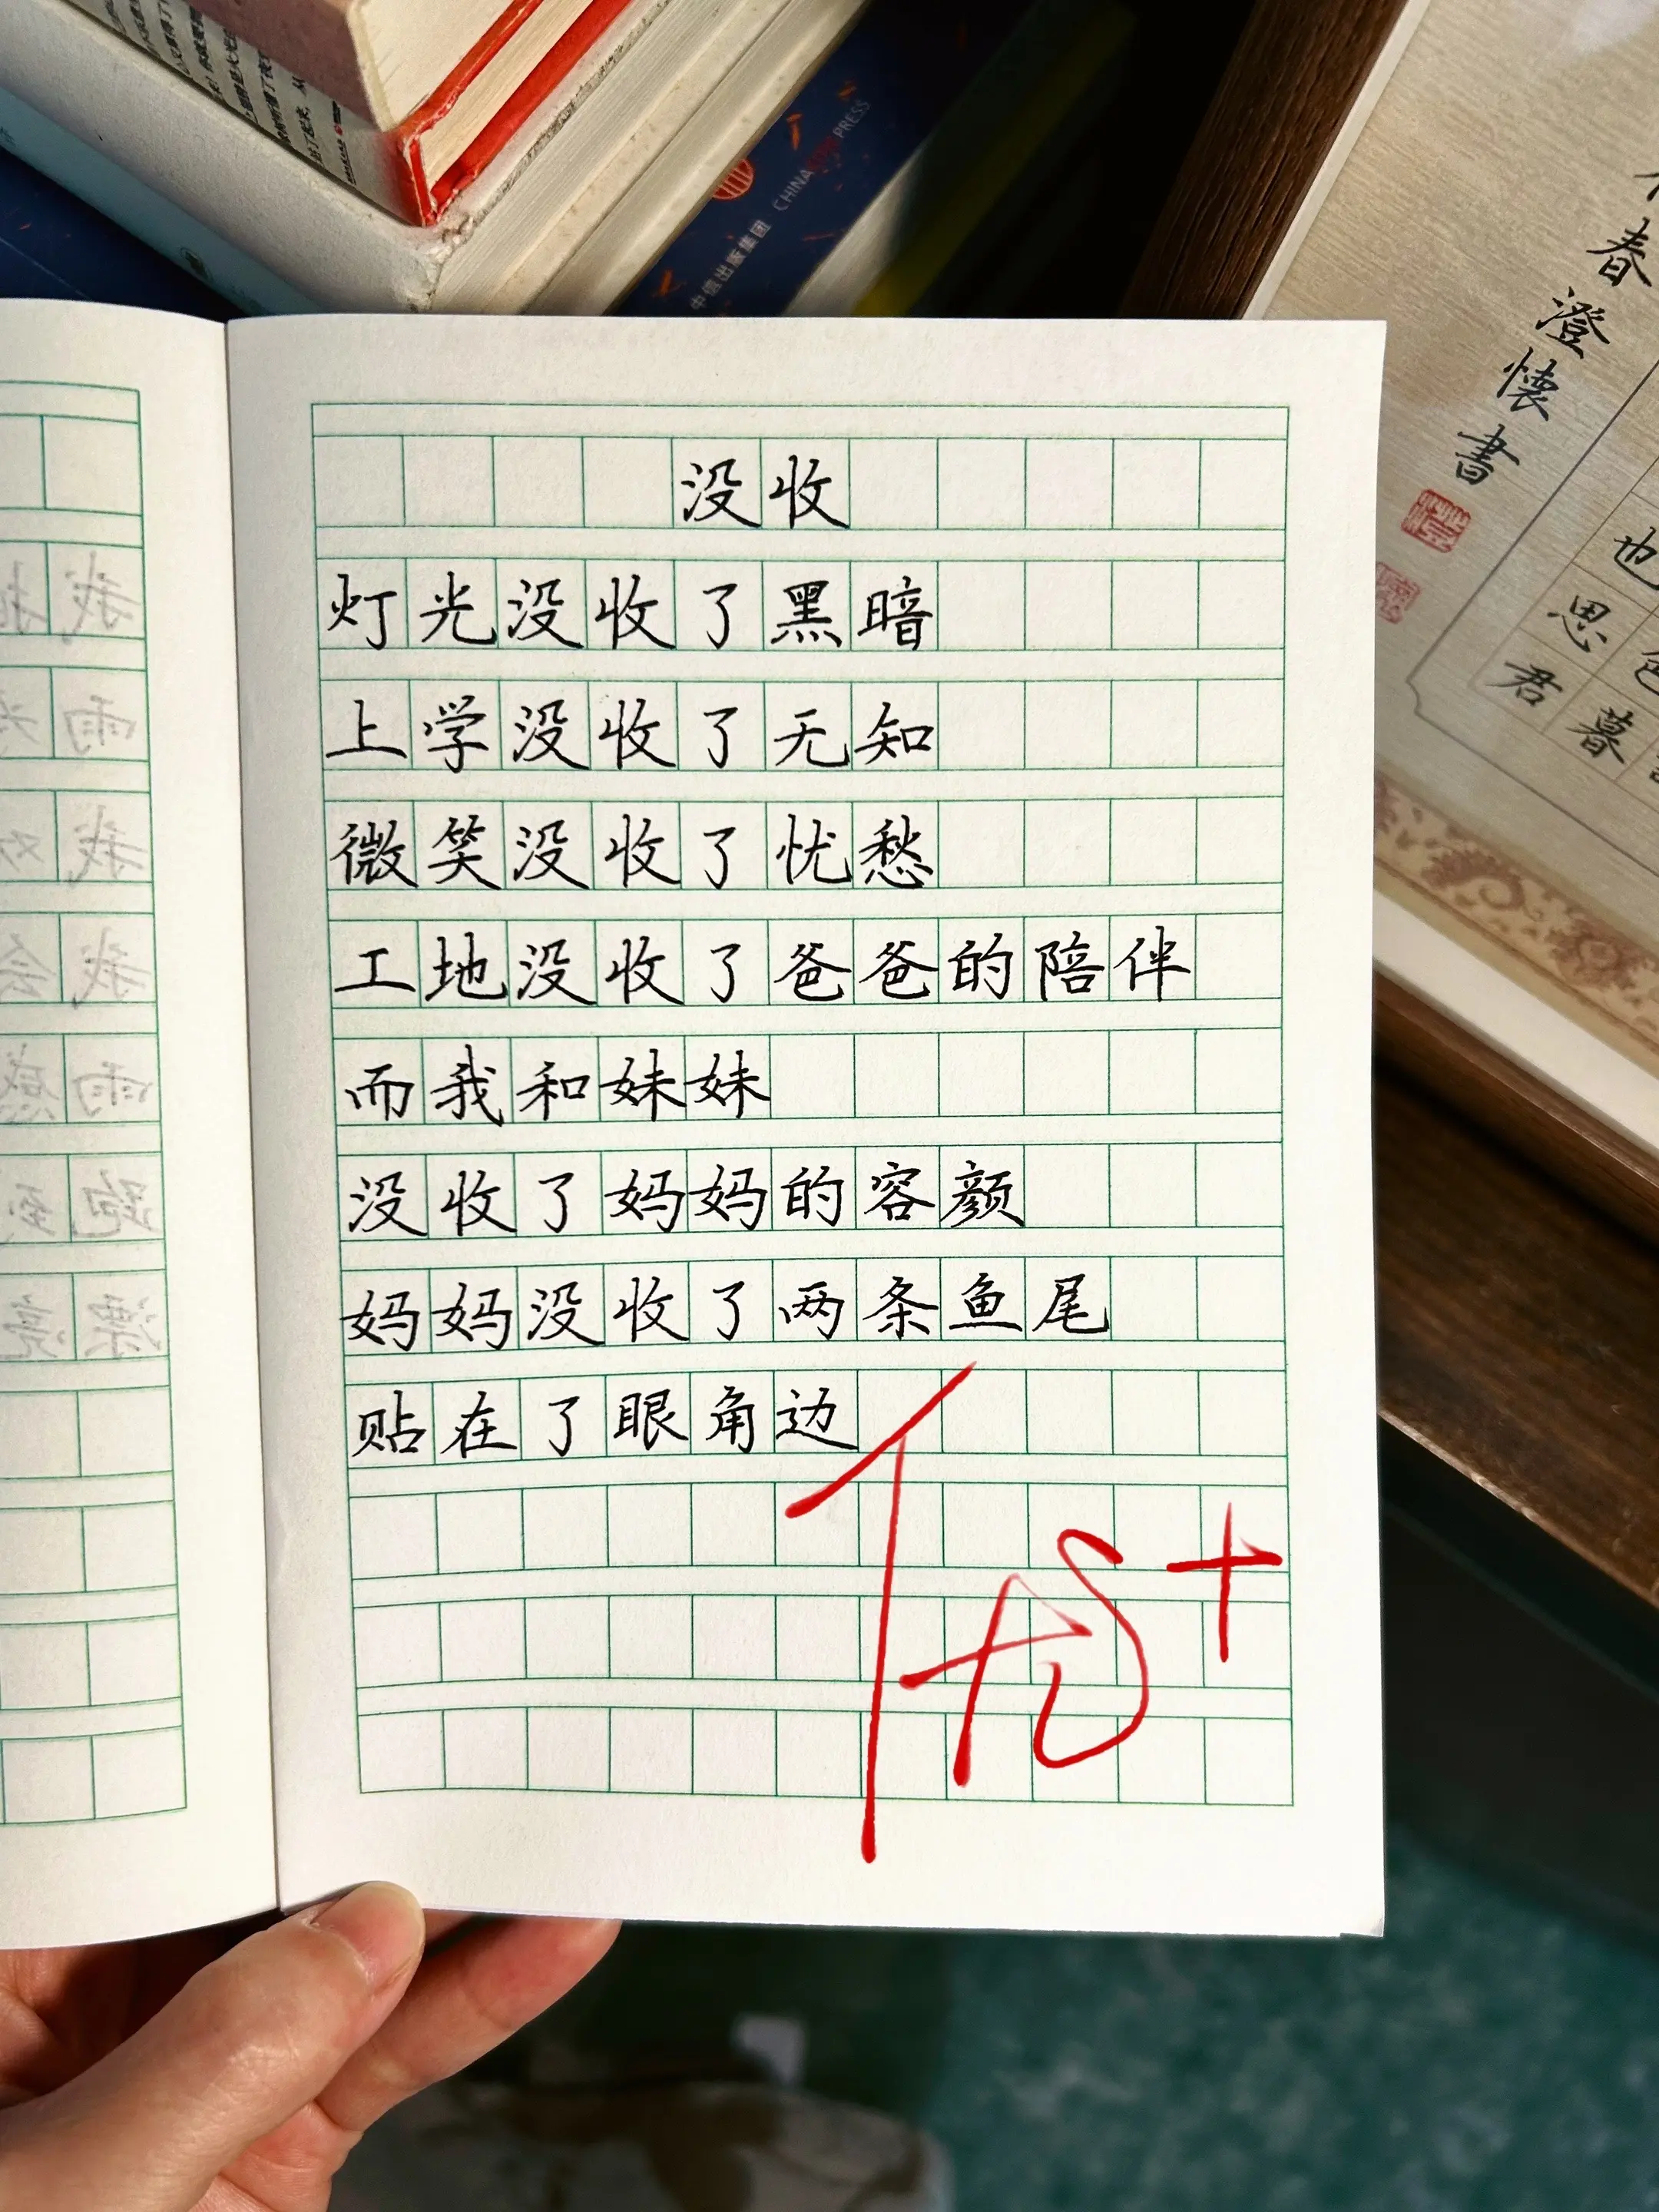 中信出版集团 CHINA CITIC PRESS
春澄懷書
也
思
君
暮
没收
灯光没收了黑暗
上学没收了无知
微笑没收了忧愁
工地没收了爸爸的陪伴
而我和妹妹
没收了妈妈的容颜
妈妈没收了两条鱼尾
贴在了眼角边
优+